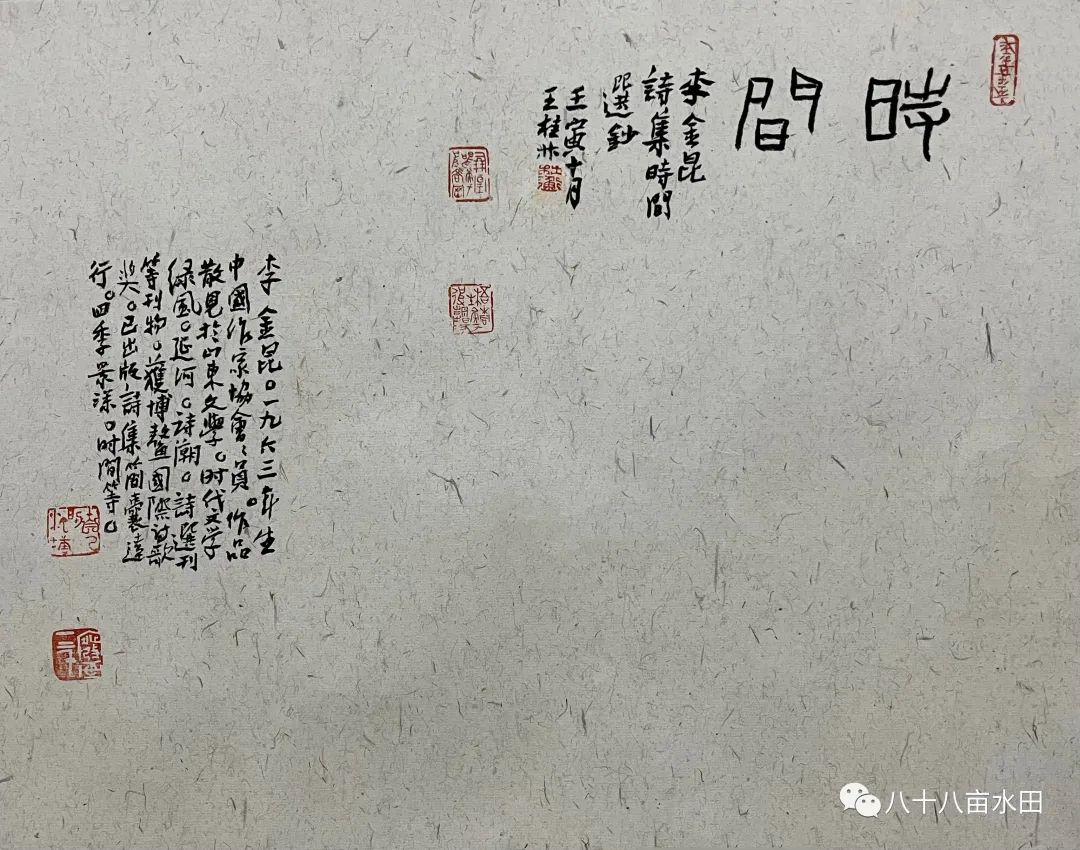 時間
李金昆
詩集時間
選鈔
壬寅十月
王桂林
李金昆。一九六三年生
中國作家協會々員。作品
散見於山東文學。时代文学
绿風。延河。诗潮。詩選刊
等刊物。獲博鰲國際诗歌
奖。已出版詩集簡囊遠
行。四季景深。时間等。
八十八亩水田